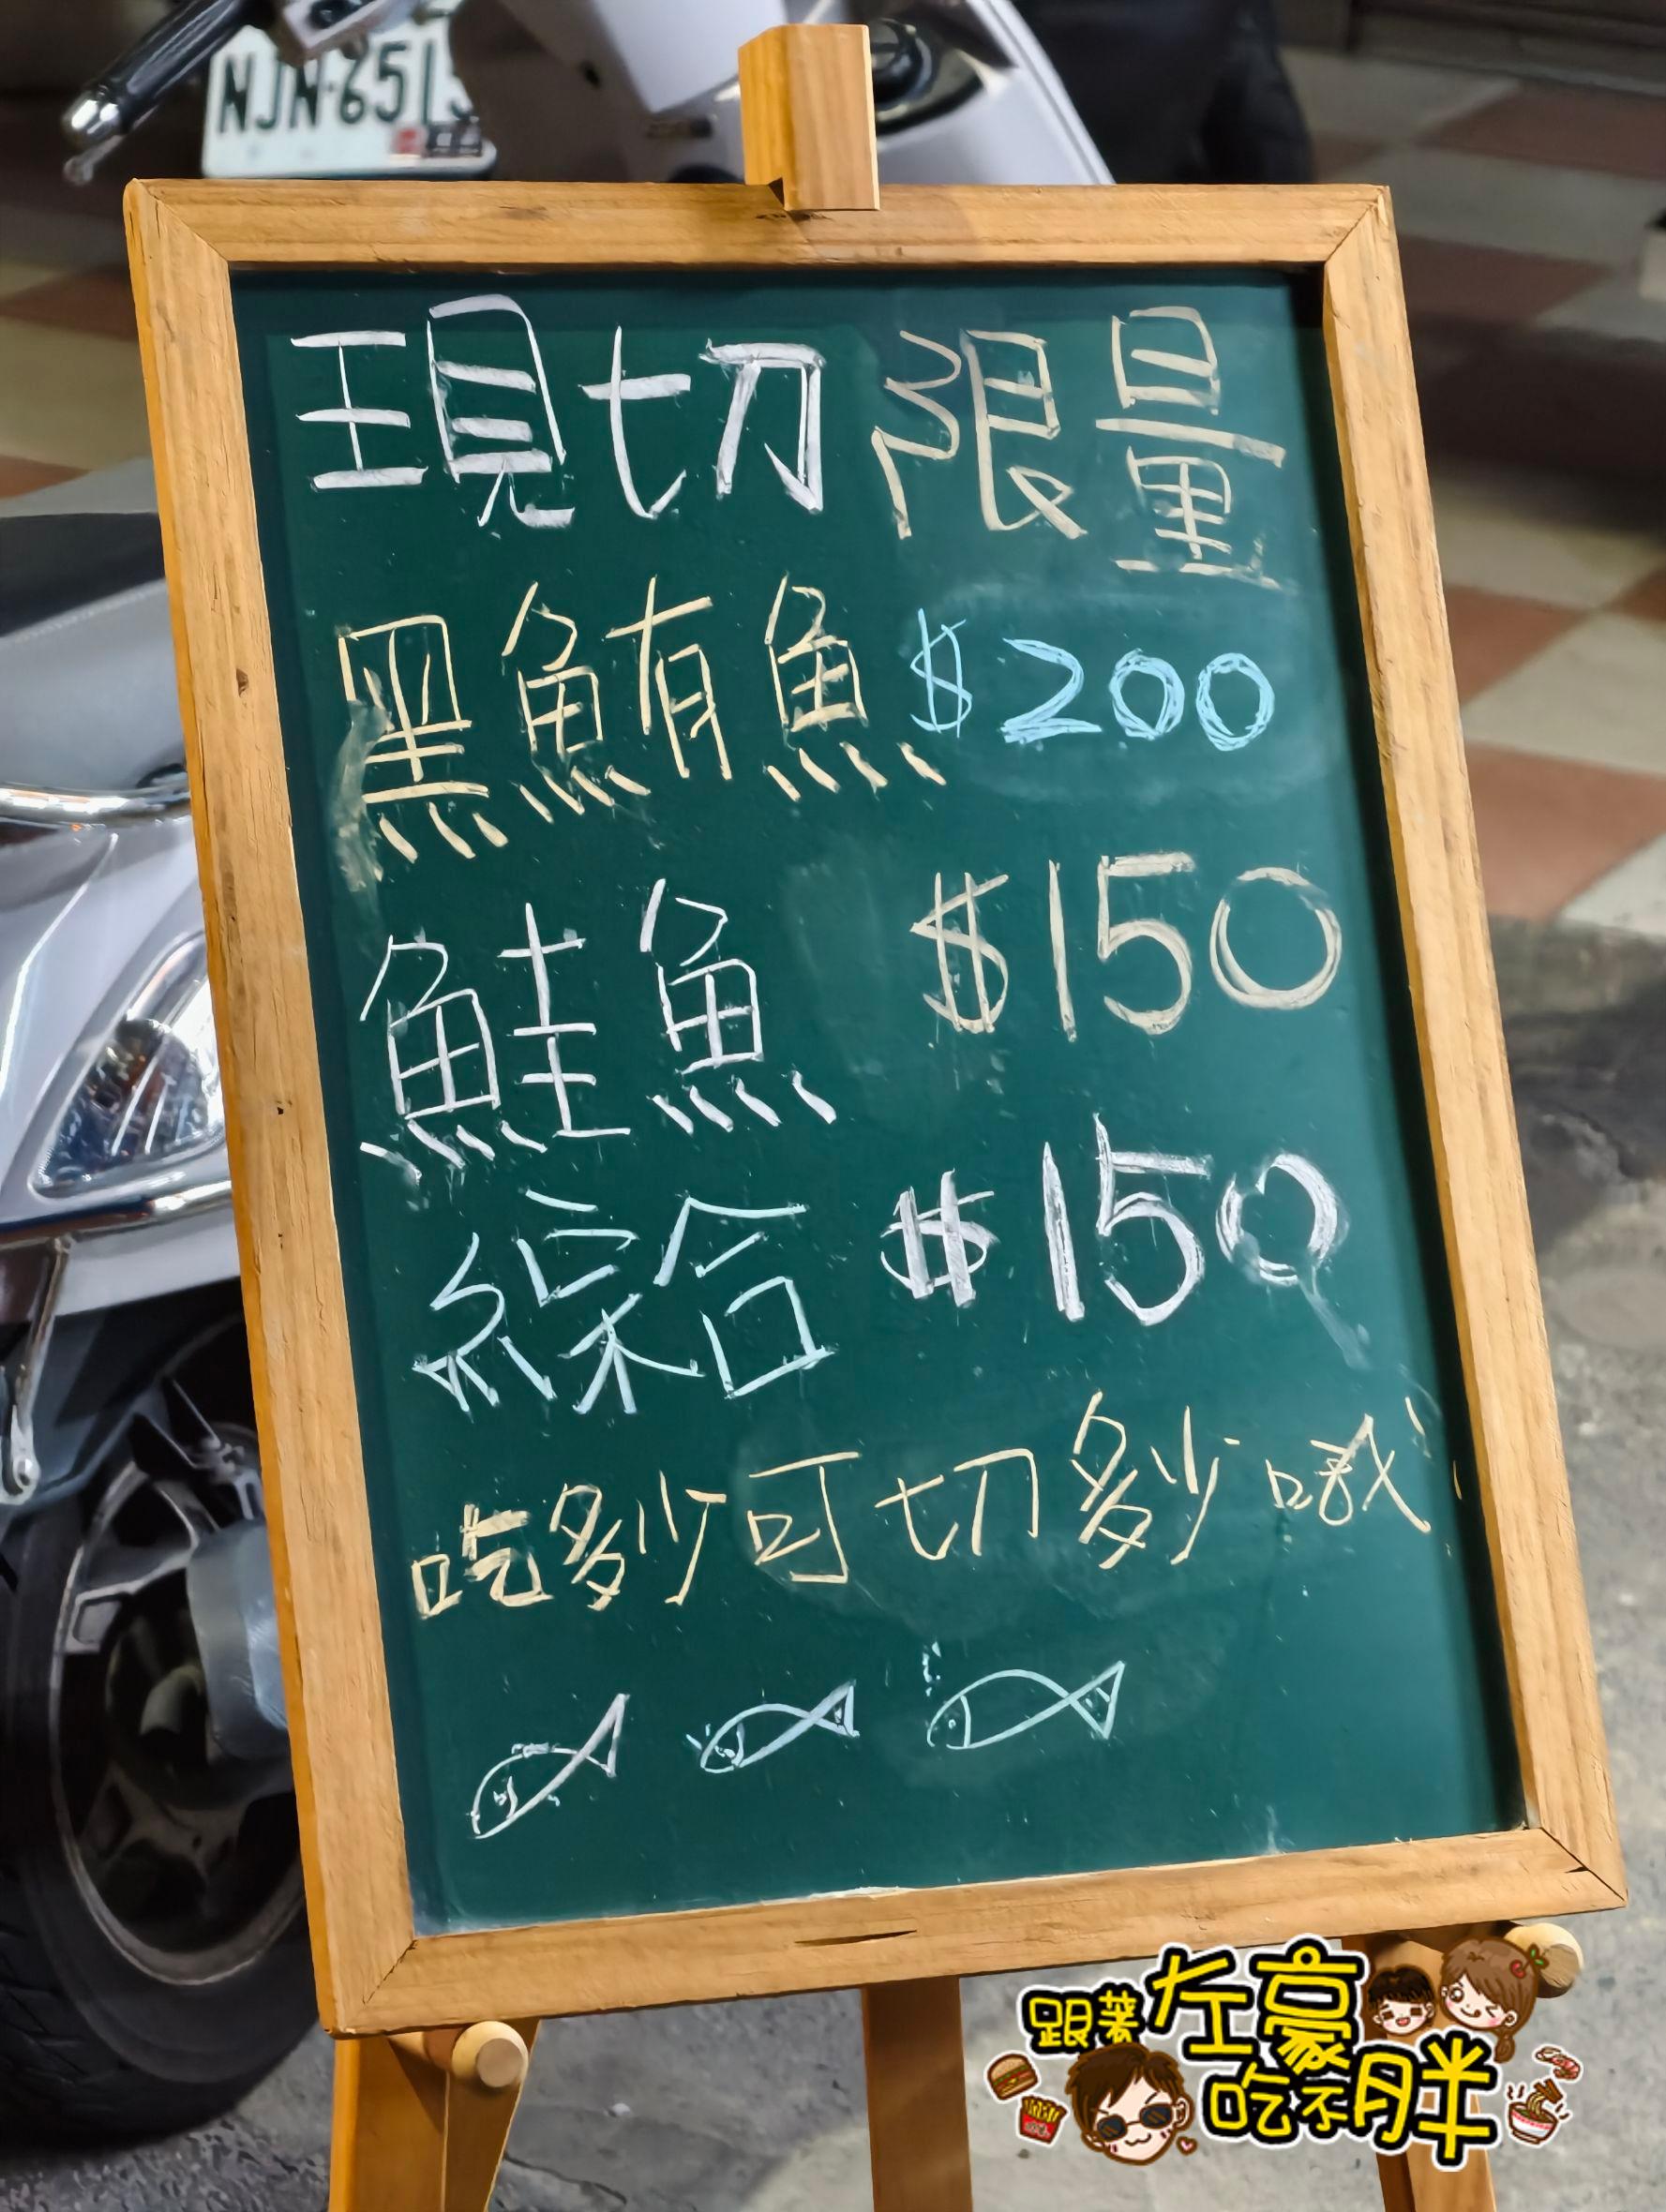 NJN-651
現切 限量
黑鮪魚 $200
鮭魚 $150
綜合 $150
吃多少可切多少哦
跟著左豪
吃不胖